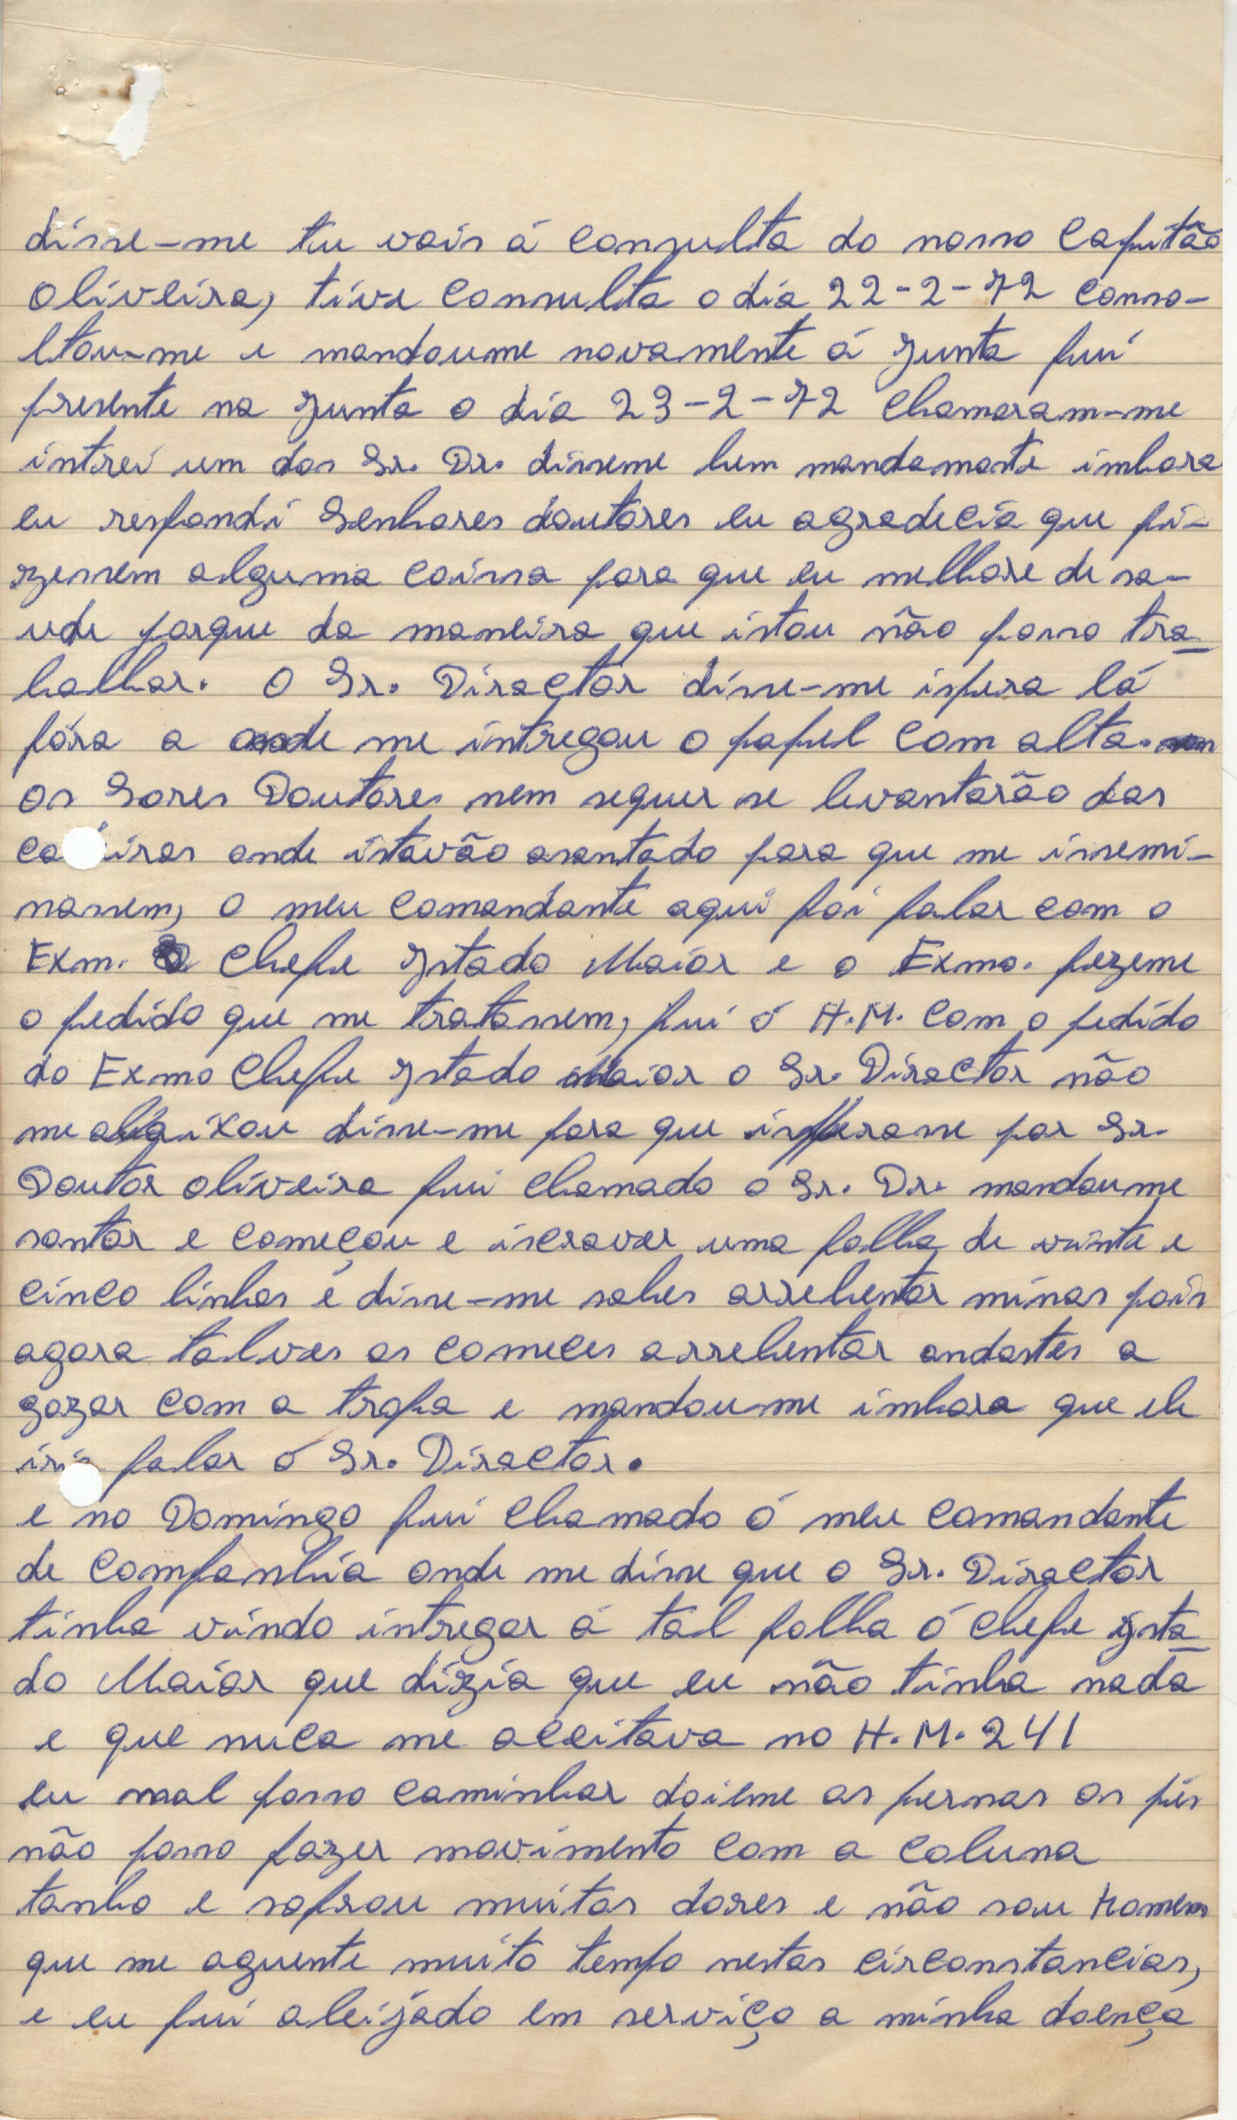 disse-me tu vais á consulta do nosso Capitão
Oliveira, tive consulta o dia 22-2-72 conso-
ltou-me e mandoume novamente á Junta fui
presente na Junta o dia 23-2-72 chamaram-me
intrei um dos Sr. Dr. disseme bem mandamoste imbora
eu respondi Senhores doutores eu agradecia que fi-
zessem alguma coissa para que eu melhore de sa-
ude porque da maneira que istou não posso tra
balhar. O Sr. Director disse-me ispera lá
fóra a onde me intregou o papel com alta.
os Sores Doutores nem sequer se levantarão das
cadeiras onde istavão asantado para que me issemi-
nassem, o meu comandante aqui foi falar com o
Exm. Chefe Istado Maior e o Exmo. fezeme
o pedido que me tratassem, fui ó H.M. com o pedido
do Exmo Chefe Istado Maior o Sr. Director não
me abaixou disse-me para que isperasse por Sr.
Doutor Oliveira fui chamado o Sr. Dr. mandoume
santar e começou e iscraver uma folha de vinte e
cinco linhas e disse-me sabes arrebentar minas pois
agora talves as comeces arrebentar andastes a
gozar com a tropa e mandou-me imbora que ele
iria falar ó Sr. Director.
e no Domingo fui chamado ó meu comandante
de companhia onde me disse que o Sr. Director
tinha vindo intregar á tal folha ó chefe Ista
do Maior que dizia que eu não tinha nada
e que nuca me aceitava no H.M. 241
eu mal posso caminhar doieme as pernas os pés
não posso fazer movimento com a coluna
tanho e sofrou muitas dores e não sou Homem
que me aguente muito tempo nestas circonstancias,
e eu fui aleijado em serviço a minha doença